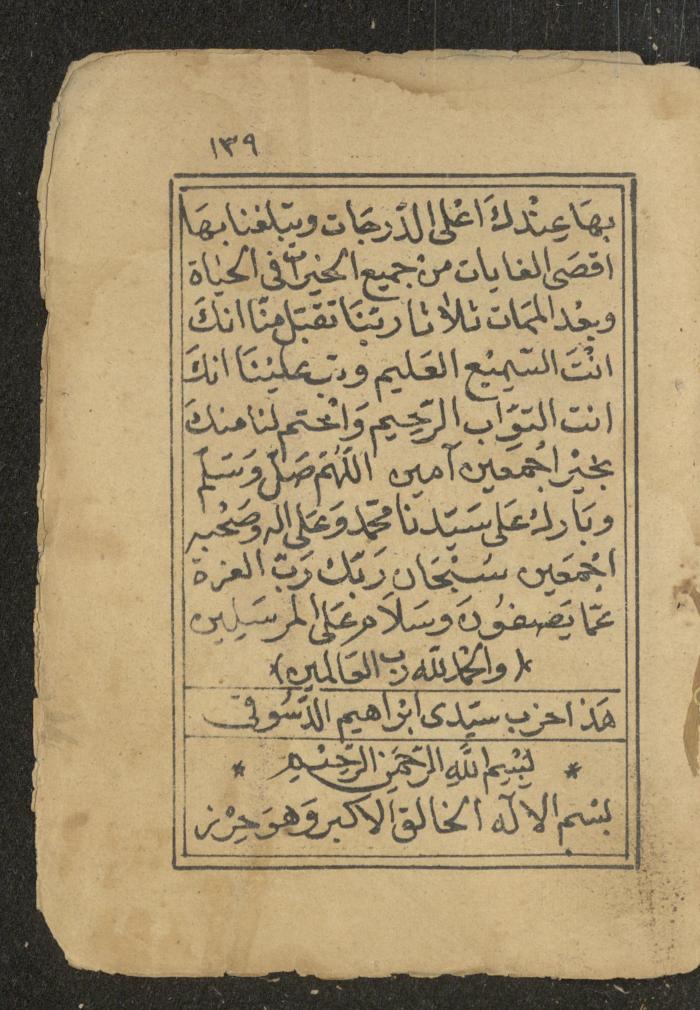 ١٣٩
بهَا عِنْدكَ اَعْلى الدّرجَات وتبلغنا بهَا
اقصَى الغايات من جميع الخيرات فى الحيَاة
وبعْد الممَات ثلاثا ربّنَا تقبّل منّا انكَ
انْتَ السّميْع العَليم وتب عليْنَا انكَ
انت التوّاب الرّحِيم وَاخْتم لنا منكَ
بخيْر اجْمعين آمين اللّهُمّ صَلّ وَسَلّم
وبَارك عَلى سَيّدنا محمّد وَعَلى اله وصَحْبه
اجْمعَين سُبْحَان رَبّك رَبّ العزة
عمّا يَصفوُنَ وسَلَام عَلى المرسَلين
(والحمد لله رب العَالمين)
هَذا حزب سيّدى ابْراهيم الدّسُوقى
* بِسْمِ اللَّهِ الرّحمَنِ الرّحِيْمِ *
بسْم الالَه الخالق الاكبر وَهوَ حِرْز